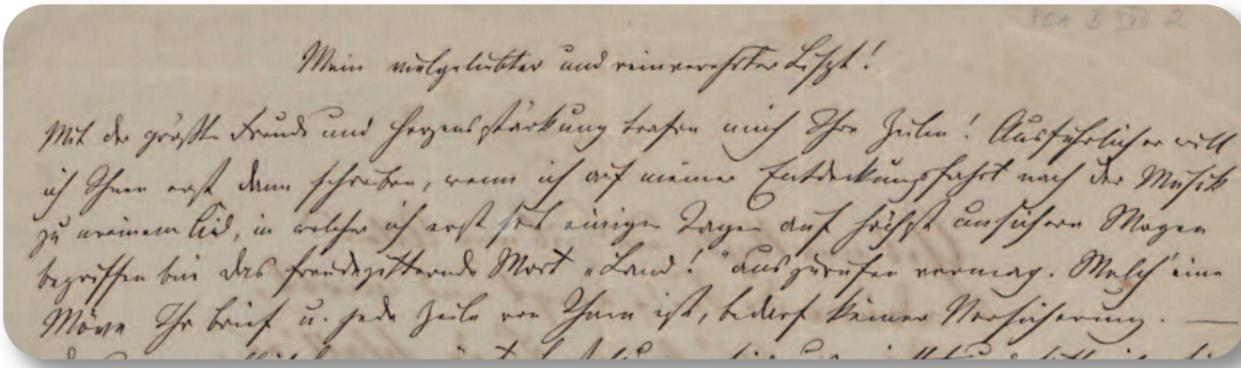 PCA B XVII 2
Mein vielgeliebter und reinverehrter Liszt!
Mit der größten Freude und Herzensstärkung trafen mich Ihre Zeilen! Ausführlicher will
ich Ihnen erst dann schreiben, wenn ich auf meiner Entdeckungsfahrt nach der Musik
zu meinem Cid, in welcher ich erst seit einigen Tagen auf höchst unsichern Wogen
begriffen bin das freudezitternde Wort „Land!“ auszurufen vermag. Welch' eine
Möve Ihr Brief u. jede Zeile von Ihnen ist, bedarf keiner Versicherung. —